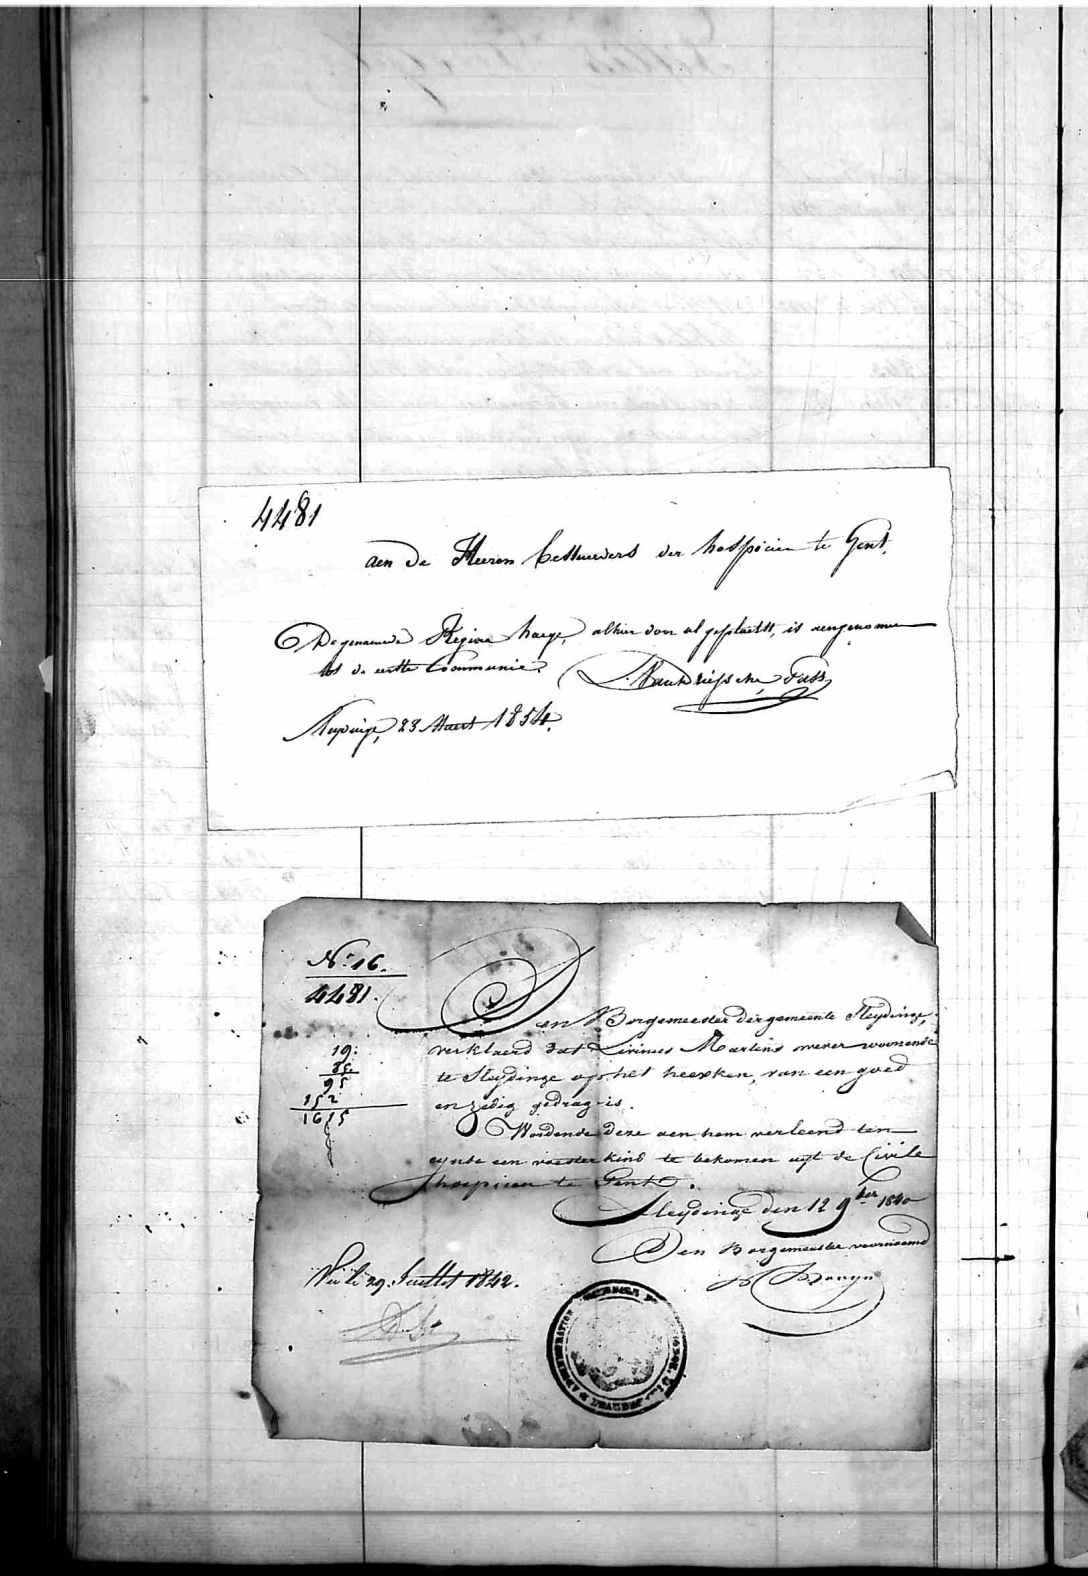 4481
aen de Heeren bestuerders der hospicien te Gent.
De genaemde Regina haege, alhier door ul geplaetst, is aengenomen
tot de eerste Communie.
Sleydinge, 23 Maert 1854.
N.º 16.
4481.
Den Borgemeester der gemeente Sleydinge,
verklaerd dat Livinus Martens wever woonende
te Sleydinge op het heexken, van een goed
en zedig gedrag is.
Wordende deze aen hem verleend ten
eynde een voesterkind te bekomen uyt de Civile
hospicien te Gent.
Sleydinge den 12 9ber 1840
Den Borgemeester voornoemd
19.
85.
95
152
1615
Vu le 29. Juillet 1842.